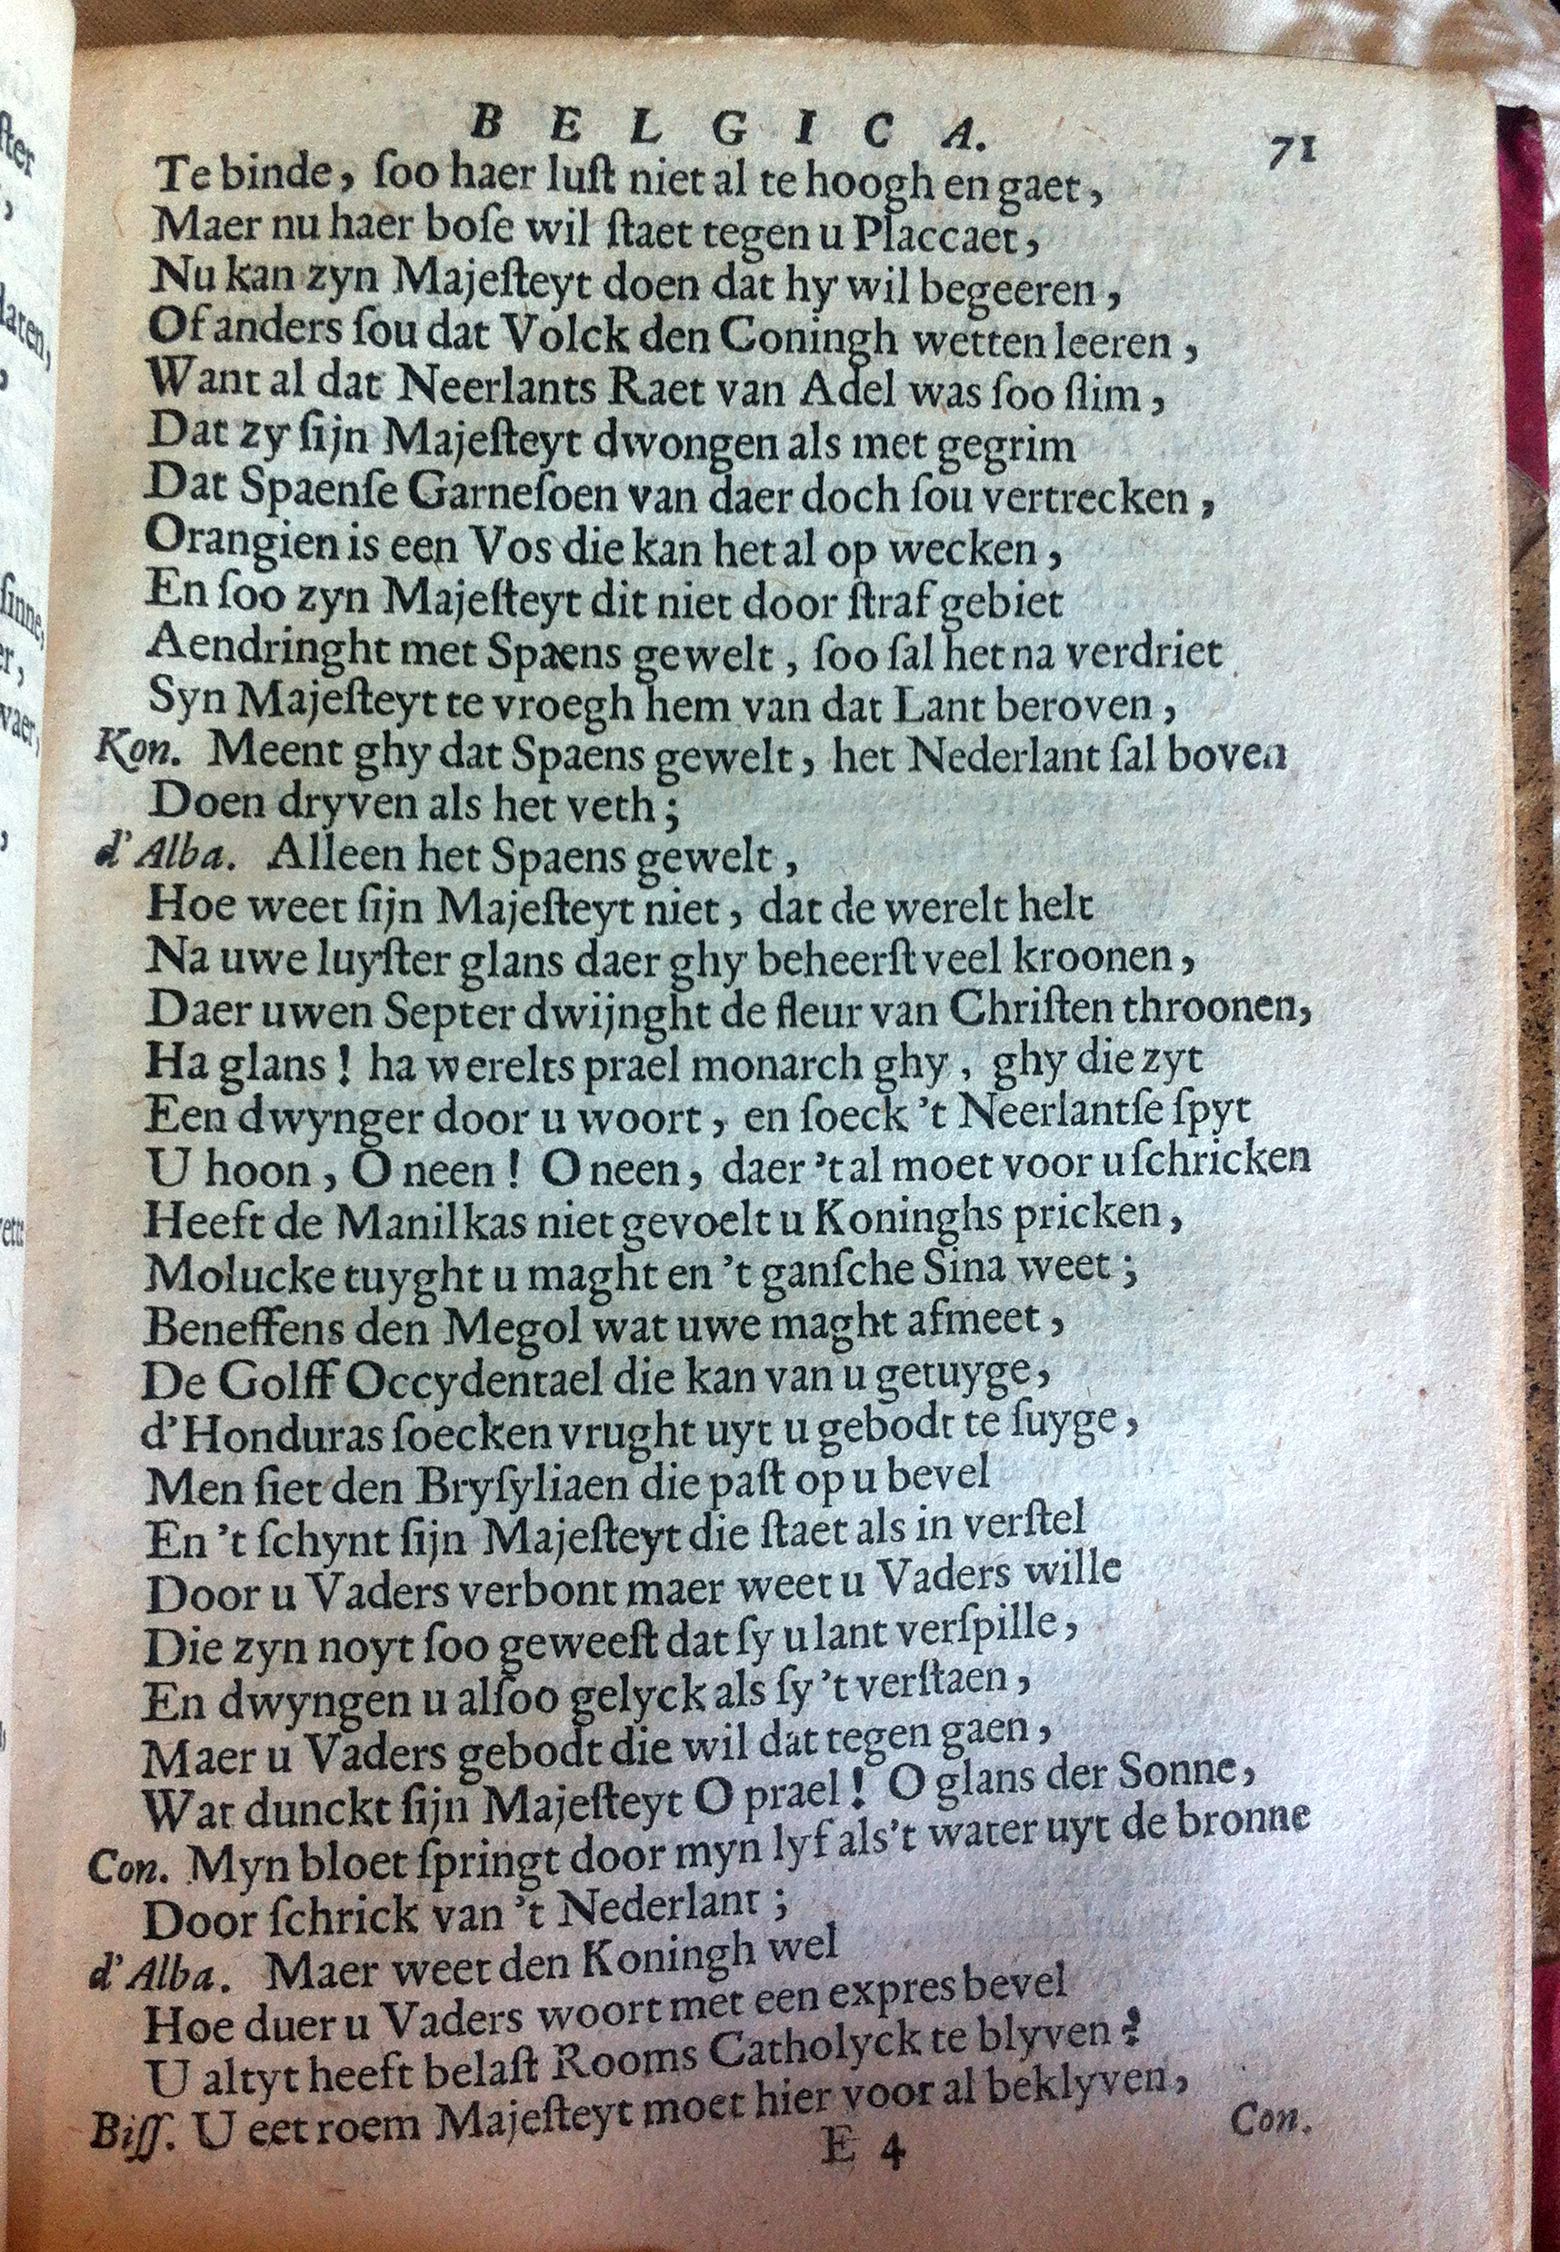 BELGICA. 71
Te binde, ſoo haer luſt niet al te hoogh en gaet,
Maer nu haer boſe wil ſtaet tegen u Placcaet,
Nu kan zyn Majeſteyt doen dat hy wil begeeren,
Of anders ſou dat Volck den Coningh wetten leeren,
Want al dat Neerlants Raet van Adel was ſoo ſlim,
Dat zy ſijn Majeſteyt dwongen als met gegrim
Dat Spaenſe Garneſoen van daer doch ſou vertrecken,
Orangien is een Vos die kan het al op wecken,
En ſoo zyn Majeſteyt dit niet door ſtraf gebiet
Aendringht met Spaens gewelt, ſoo ſal het na verdriet
Syn Majeſteyt te vroegh hem van dat Lant beroven,
Kon. Meent ghy dat Spaens gewelt, het Nederlant ſal boven
Doen dryven als het veth;
d'Alba. Alleen het Spaens gewelt,
Hoe weet ſijn Majeſteyt niet, dat de werelt helt
Na uwe luyſter glans daer ghy beheerſt veel kroonen,
Daer uwen Septer dwijnght de fleur van Chriſten throonen,
Ha glans! ha werelts prael monarch ghy, ghy die zyt
Een dwynger door u woort, en ſoeck 't Neerlantſe ſpyt
U hoon, O neen! O neen, daer 't al moet voor u ſchricken
Heeft de Manilkas niet gevoelt u Koninghs pricken,
Molucke tuyght u maght en 't ganſche Sina weet;
Beneffens den Megol wat uwe maght afmeet,
De Golff Occydentael die kan van u getuyge,
d'Honduras ſoecken vrught uyt u gebodt te ſuyge,
Men ſiet den Bryſyliaen die paſt op u bevel
En 't ſchynt ſijn Majeſteyt die ſtaet als in verſtel
Door u Vaders verbont maer weet u Vaders wille
Die zyn noyt ſoo geweeſt dat ſy u lant verſpille,
En dwyngen u alſoo gelyck als ſy 't verſtaen,
Maer u Vaders gebodt die wil dat tegen gaen,
Wat dunckt ſijn Majeſteyt O prael! O glans der Sonne,
Con. Myn bloet ſpringt door myn lyf als 't water uyt de bronne
Door ſchrick van 't Nederlant;
d'Alba. Maer weet den Koningh wel
Hoe duer u Vaders woort met een expres bevel
U altyt heeft belaſt Rooms Catholyck te blyven?
Biſſ. U eet roem Majeſteyt moet hier voor al beklyven,
E 4 Con.